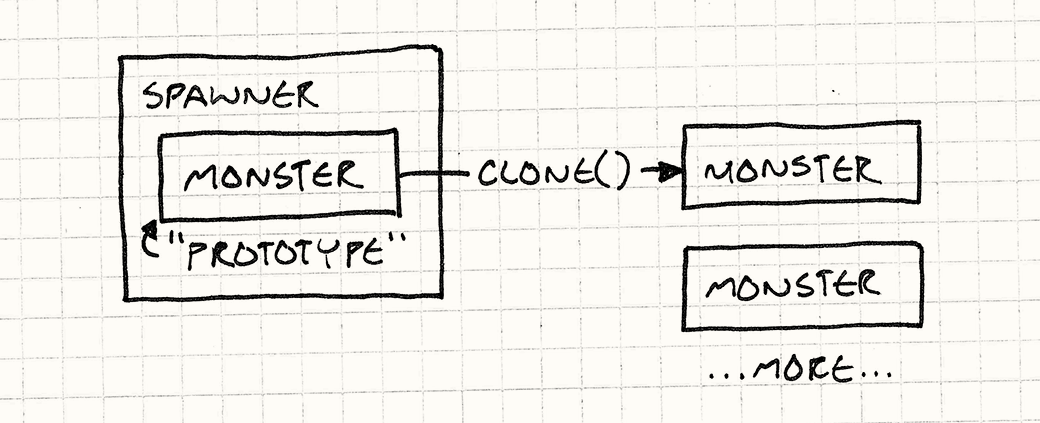 SPAWNER
MONSTER
"PROTOTYPE"
CLONE()
MONSTER
MONSTER
...MORE...